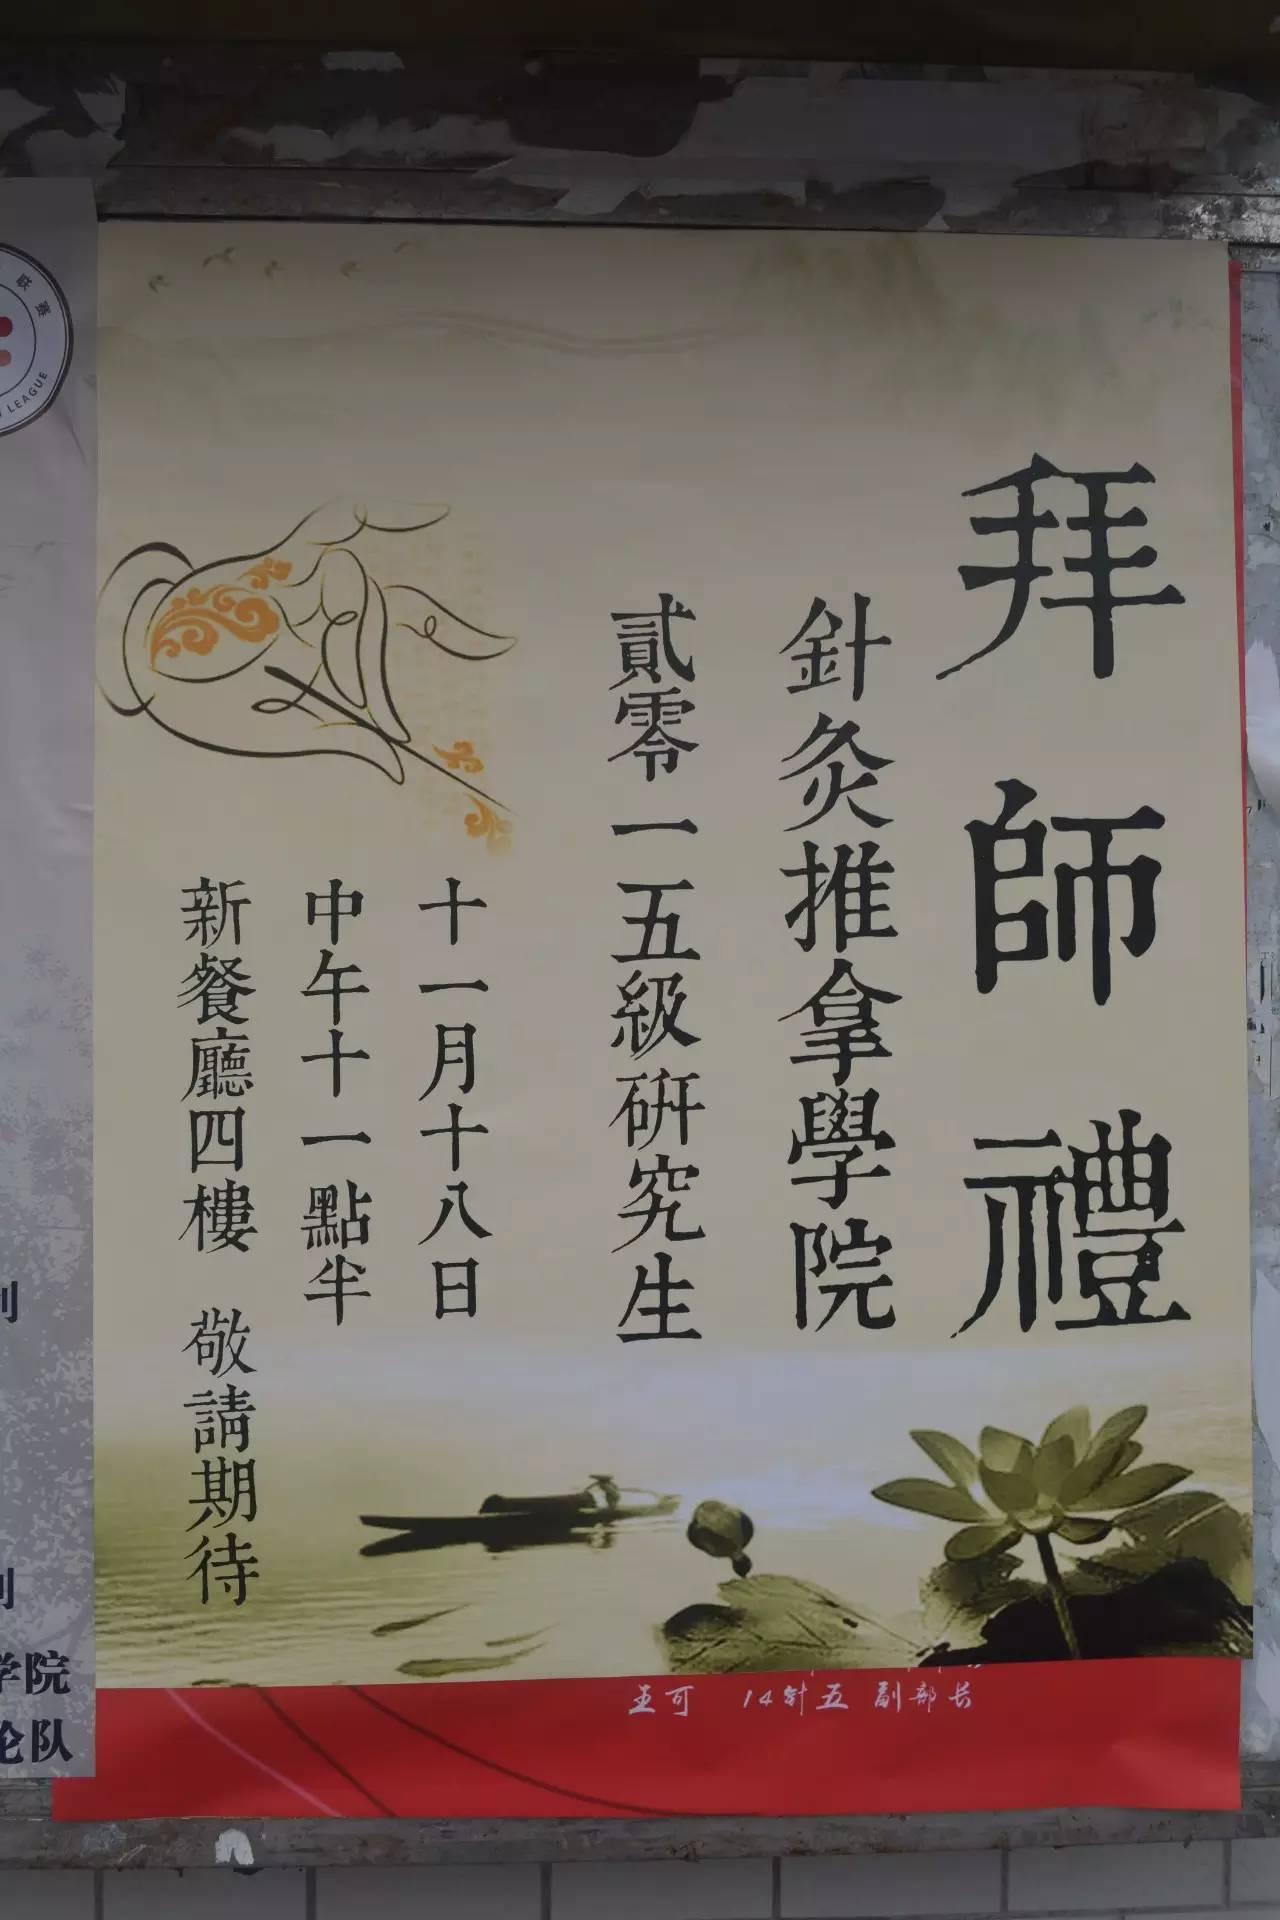 拜師禮
針灸推拿學院
貳零一五級研究生
十一月十八日
中午十一點半
新餐廳四樓 敬請期待
王可 14针五 副部长
联赛
LEAGUE
学院
论队